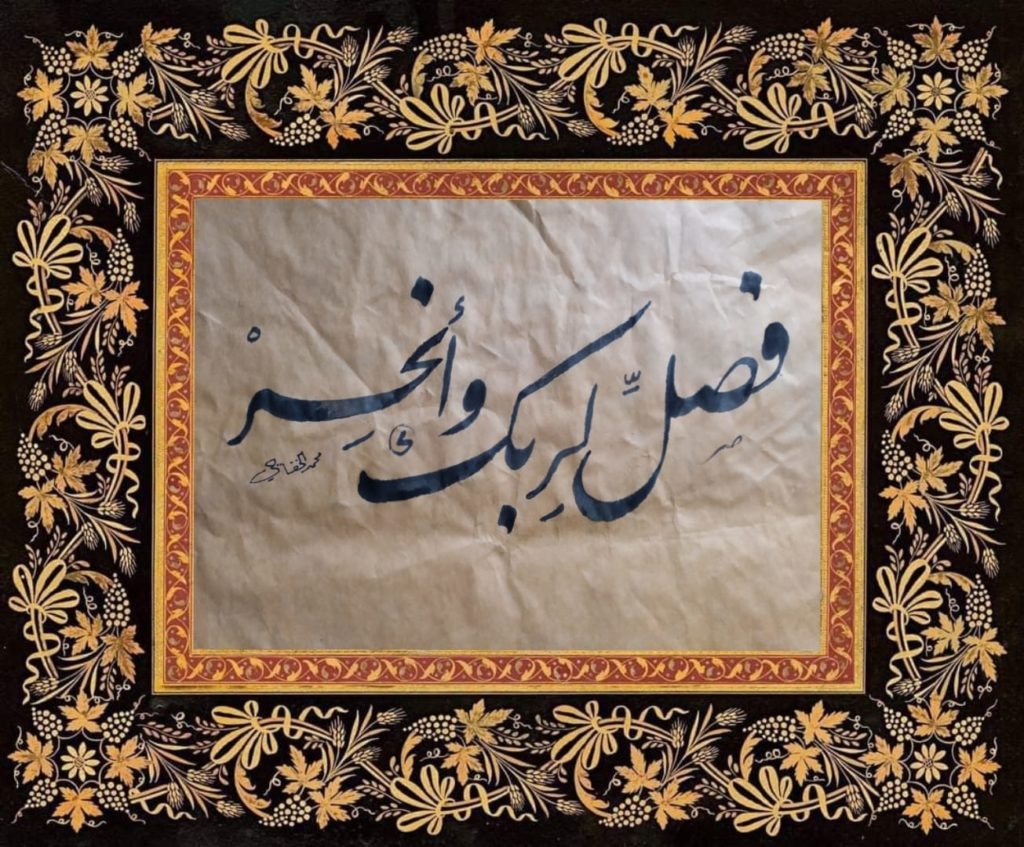 فصلِّ لِربك وأنحِرْ ٢
محمد الخفاجي